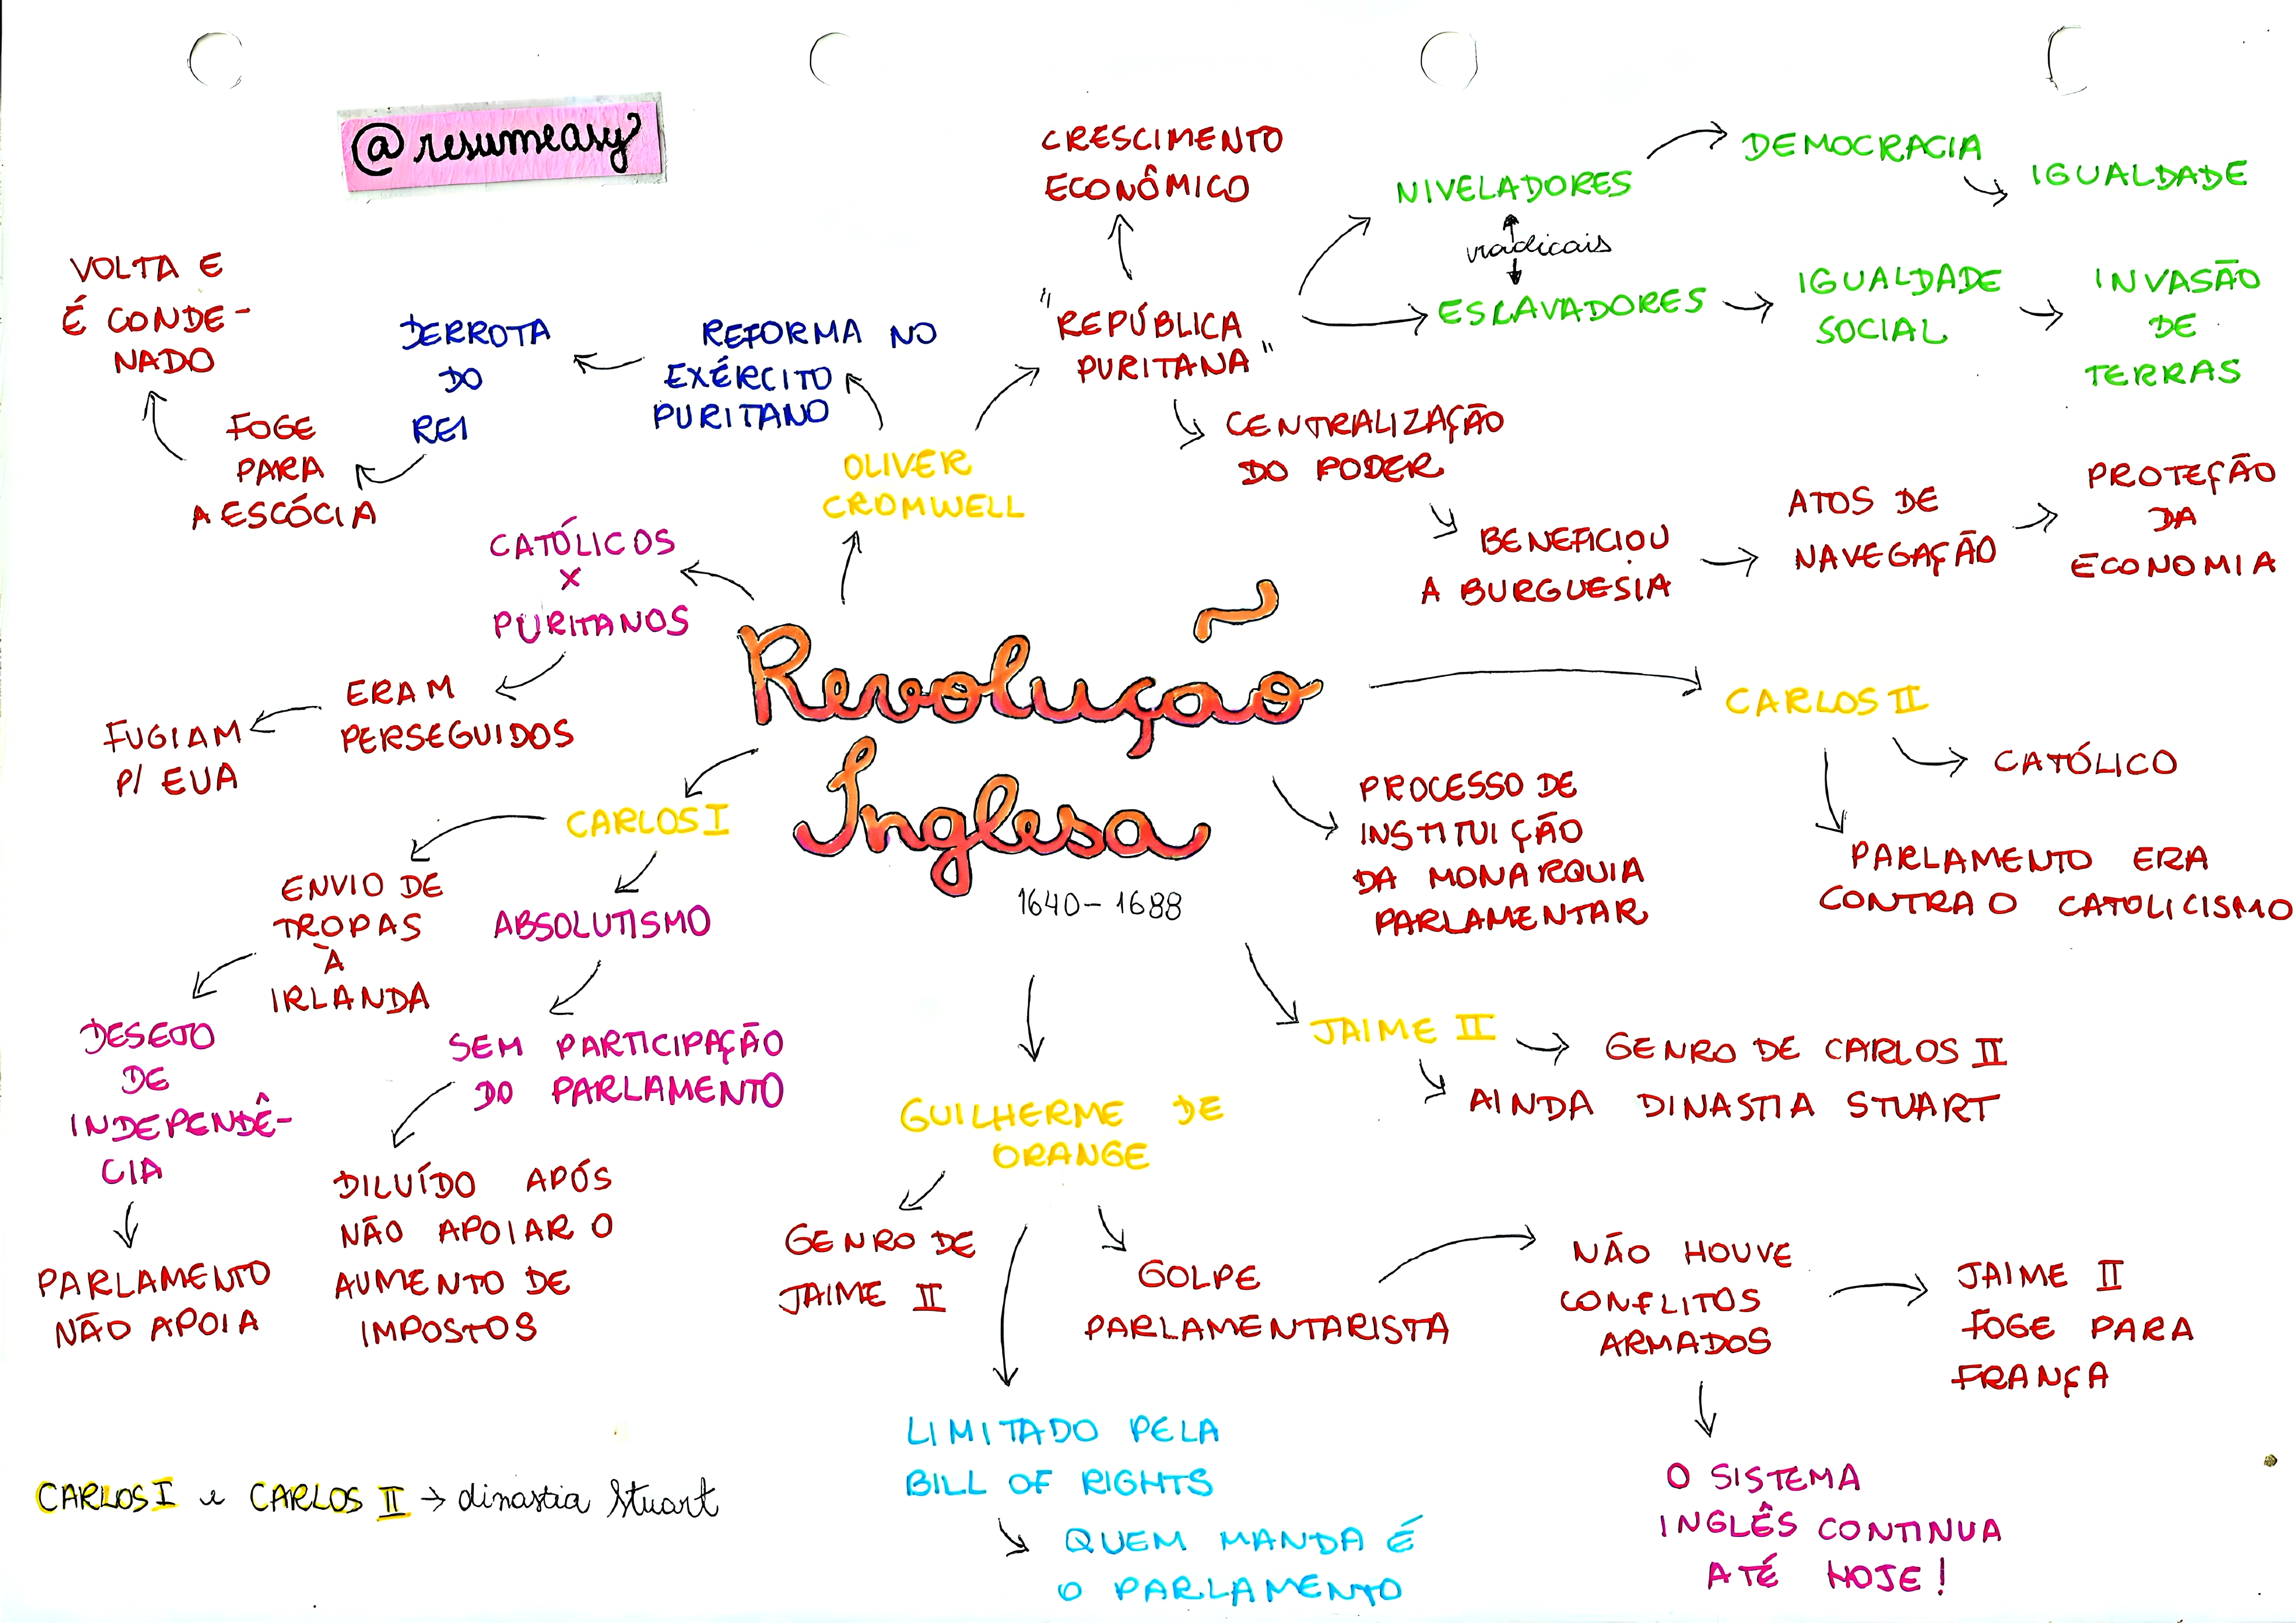 @resumeasy
Revolução
Inglesa
1640 - 1688
CATÓLICOS
X
PURITANOS
ERAM
PERSEGUIDOS
FUGIAM
P/ EUA
OLIVER
CROMWELL
REFORMA NO
EXÉRCITO
PURITANO
DERROTA
DO
REI
FOGE
PARA
A ESCÓCIA
VOLTA E
É CONDE-
NADO
"REPÚBLICA
PURITANA"
CRESCIMENTO
ECONÔMICO
NIVELADORES
radicais
ESCAVADORES
DEMOCRACIA
IGUALDADE
IGUALDADE
SOCIAL
INVASÃO
DE
TERRAS
CENTRALIZAÇÃO
DO PODER
BENEFICIOU
A BURGUESIA
ATOS DE
NAVEGAÇÃO
PROTEÇÃO
DA
ECONOMIA
CARLOS II
CATÓLICO
PARLAMENTO ERA
CONTRA O CATOLICISMO
PROCESSO DE
INSTITUIÇÃO
DA MONARQUIA
PARLAMENTAR
JAIME II
GENRO DE CARLOS II
AINDA DINASTIA STUART
CARLOS I
ENVIO DE
TROPAS
À
IRLANDA
DESEJO
DE
INDEPENDÊ-
CIA
PARLAMENTO
NÃO APOIA
ABSOLUTISMO
SEM PARTICIPAÇÃO
DO PARLAMENTO
DILUÍDO APÓS
NÃO APOIAR O
AUMENTO DE
IMPOSTOS
GUILHERME DE
ORANGE
GENRO DE
JAIME II
GOLPE
PARLAMENTARISTA
NÃO HOUVE
CONFLITOS
ARMADOS
JAIME II
FOGE PARA
FRANÇA
O SISTEMA
INGLÊS CONTINUA
ATÉ HOJE!
LIMITADO PELA
BILL OF RIGHTS
QUEM MANDA É
O PARLAMENTO
CARLOS I e CARLOS II → dinastia Stuart